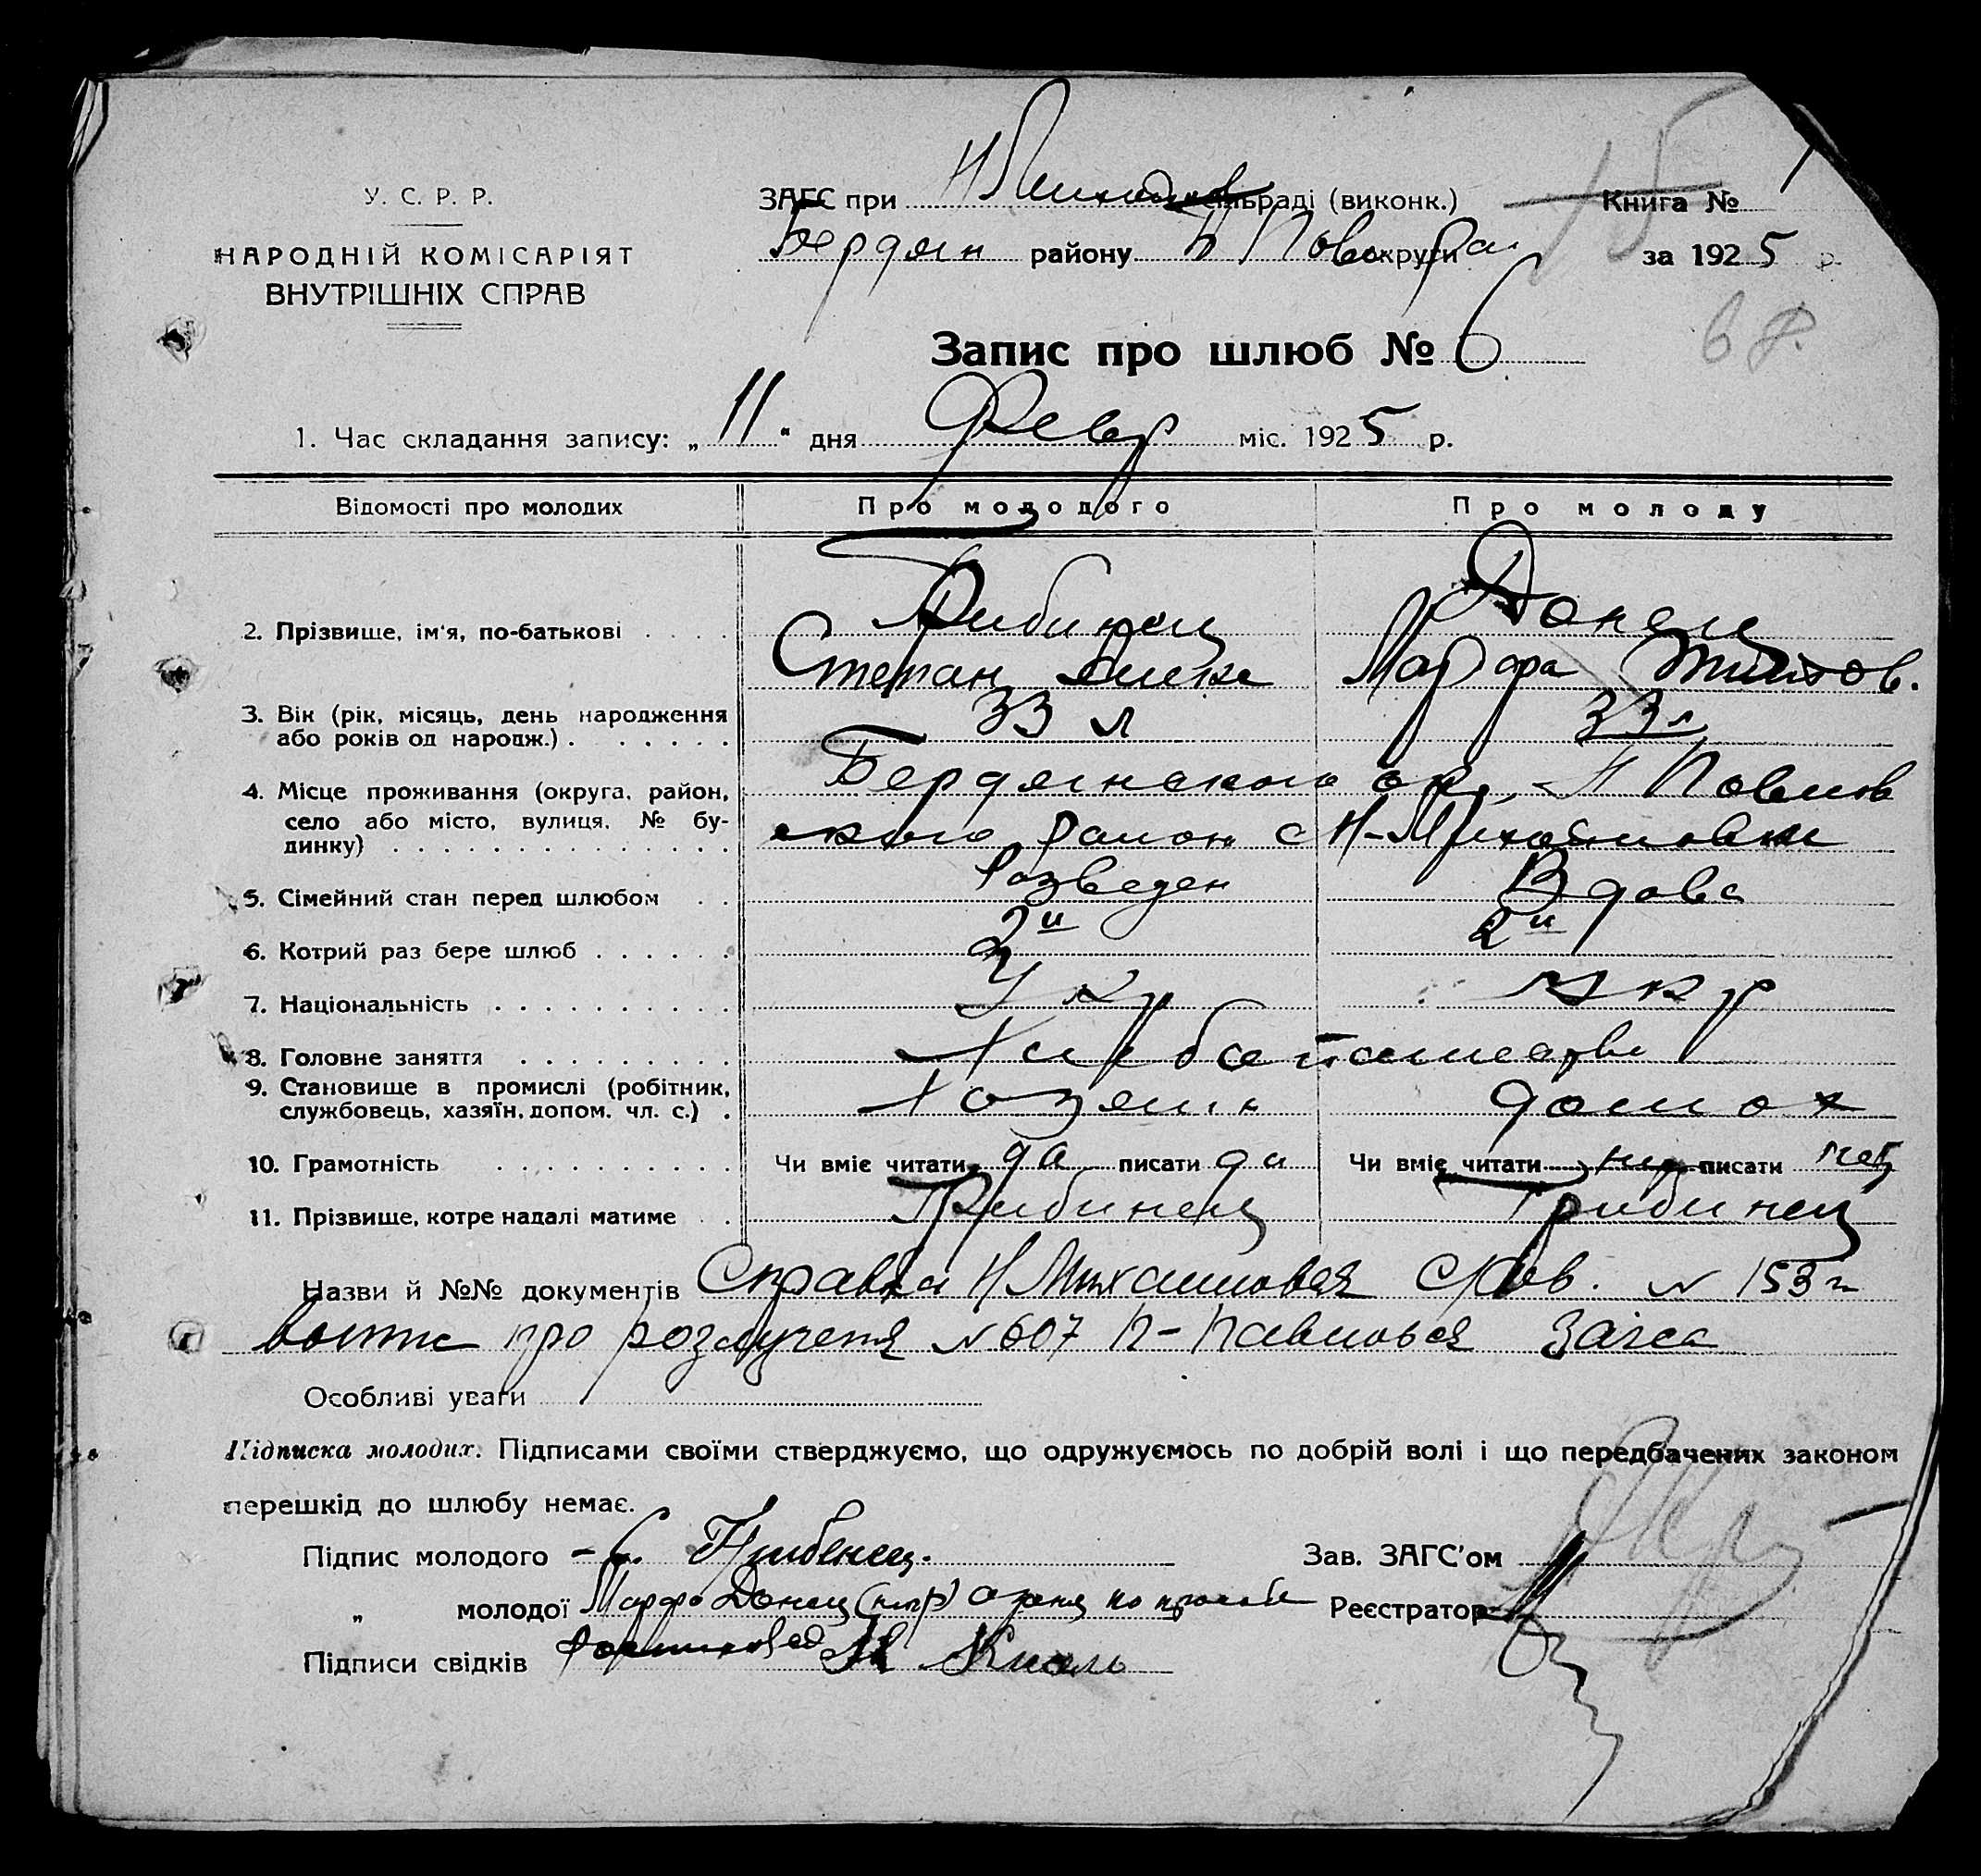 У. С. Р. Р.
НАРОДНІЙ КОМІСАРІЯТ
ВНУТРІШНІХ СПРАВ
ЗАГС при сільраді (виконк.)
Бердян району Н Павл округи
Книга № 1
за 1925 р.
Запис про шлюб № 6
1. Час складання запису: „11“ дня Февр міс. 1925 р.
Відомості про молодих Про молодого Про молоду
2. Прізвище, ім'я, по-батькові . . . . Грибинец Донец
Степан Марфа
3. Вік (рік, місяць, день народження 33 л 33 л
або років од народж.) . . . . . .
4. Місце проживання (округа, район, Бердянского окр, Н Павлов
село або місто, вулиця, № бу- ского район с Н-Михайловки
динку) . . . . . . . . . . . . . .
5. Сімейний стан перед шлюбом . . Розведен Вдова
6. Котрий раз бере шлюб . . . . . . 2й 2й
7. Національність . . . . . . . . . . Укр Укр
8. Головне заняття . . . . . . . . . Хлебопашество
9. Становище в промислі (робітник, Хозяин домох
службовець, хазяїн, допом. чл. с.) .
10. Грамотність . . . . . . . . . . Чи вміє читати да писати да Чи вміє читати писати нет
11. Прізвище, котре надалі матиме . . Грибинец Грибинец
Назви й №№ документів Справка Н Михайловся № 153 и
про розлученя № 607 Н-Павловся Загса
Особливі уваги
Підписка молодих. Підписами своїми стверджуємо, що одружуємось по добрій волі і що передбачених законом
перешкід до шлюбу немає.
Підпис молодого - С. Грибенец. Зав. ЗАГС'ом
„ молодої Марфа Донец по просьбе Реєстратор
Підписи свідків